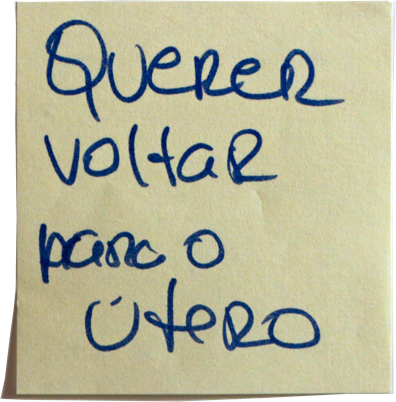 Querer
voltar
para o
útero